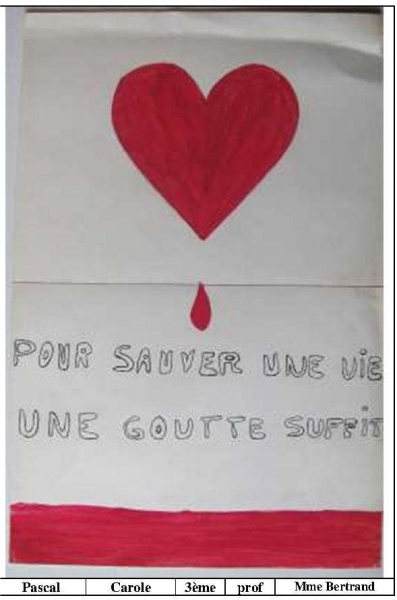 POUR SAUVER UNE VIE
UNE GOUTTE SUFFIT
Pascal Carole 3ème prof Mme Bertrand